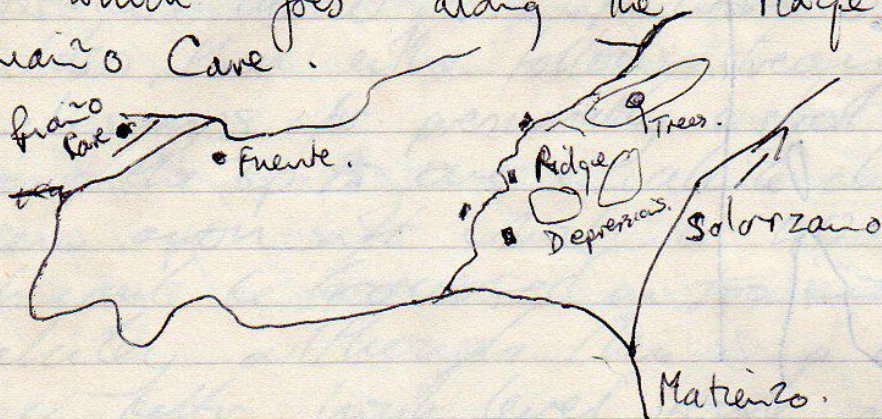 which goes along the ridge
Cave.
Cave
Fuente.
Trees.
Ridge
Depressions.
Solorzano
Matienzo.